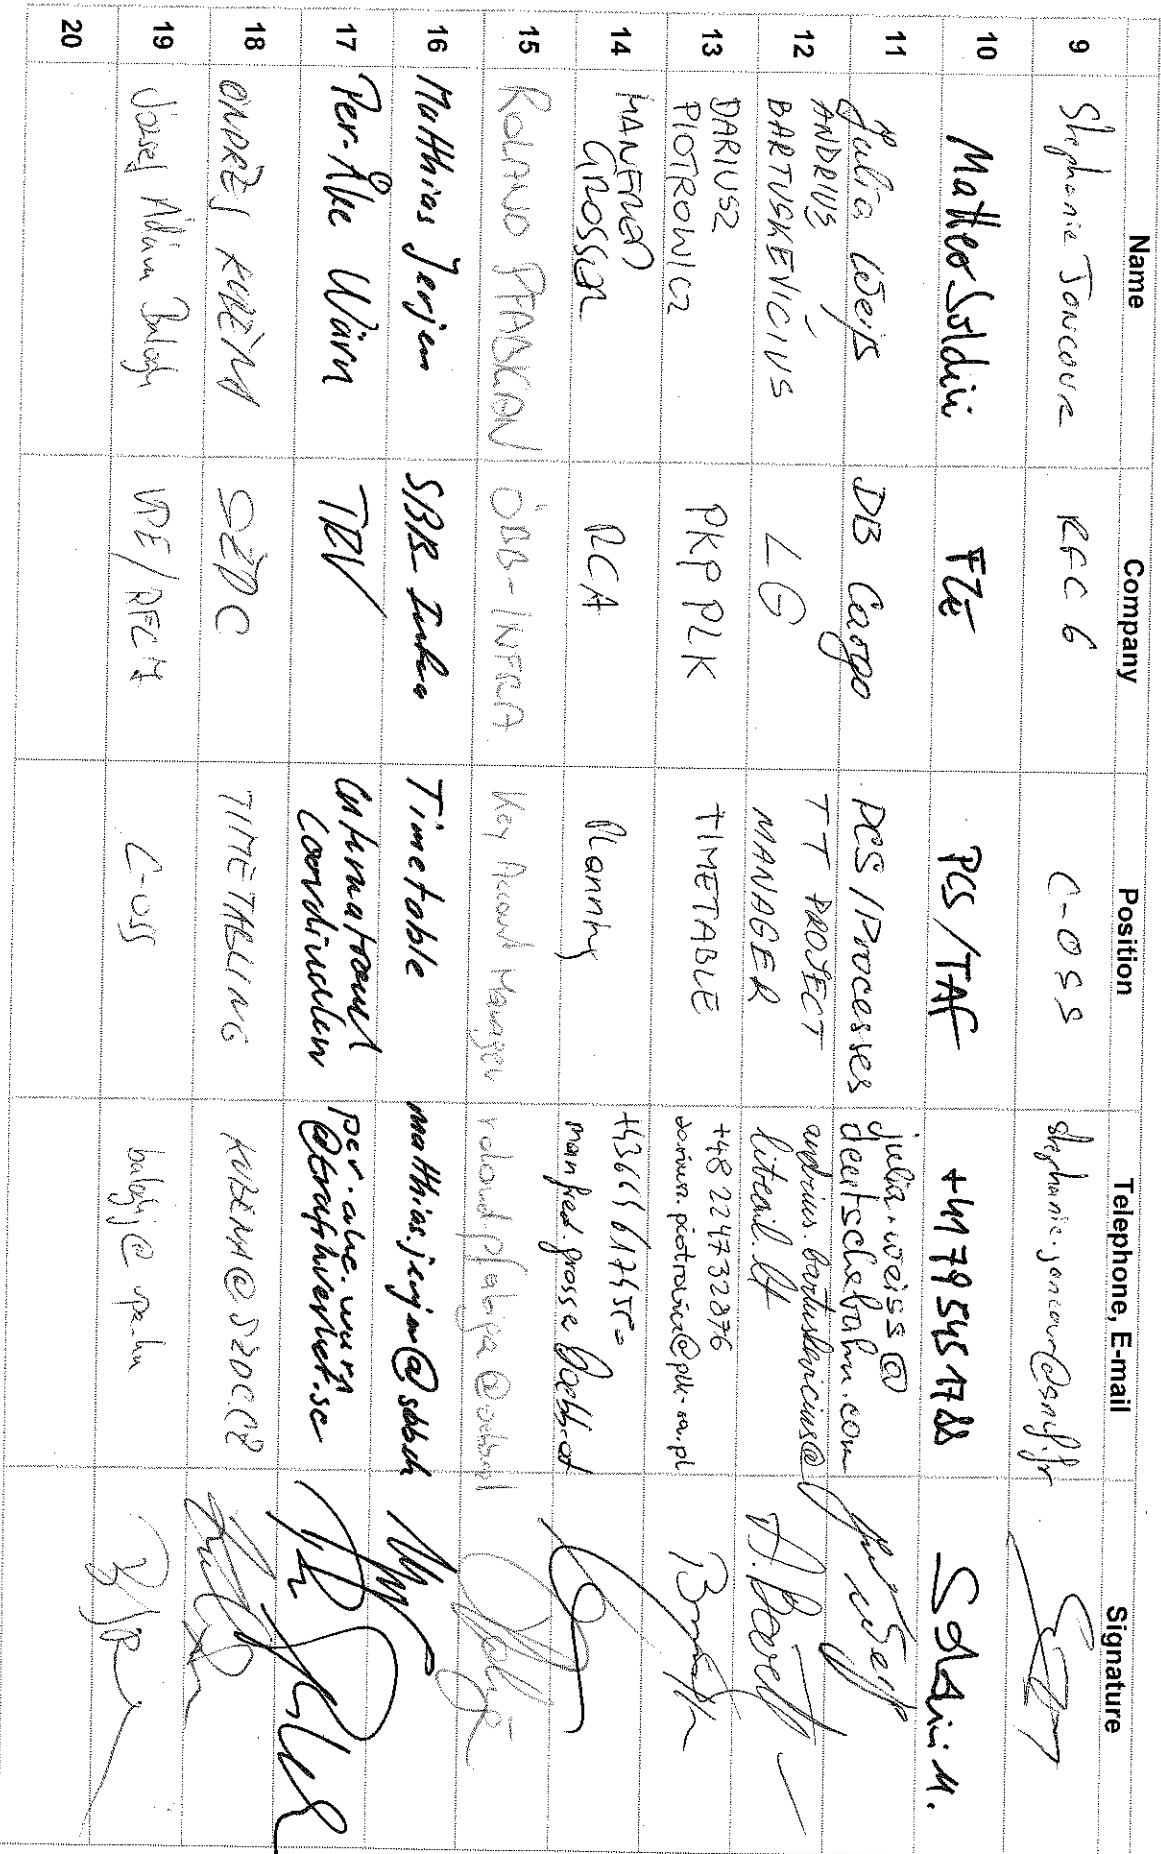 Name Company Position Telephone, E-mail Signature
9 Stephanie Joncour RFC 6 C-OSS stephanie.joncour@sncf.fr
10 Matteo Soldini FTE PCS/TAF +41795451788 Soldini M.
11 Julia Weiß DB Cargo PCS/Processes julia.weiss@
deutschebahn.com
12 ANDRIUS
BARTUSKEVICIUS LG TT PROJECT
MANAGER andrius.bartuskevicius@
litrail.lt
13 DARIUSZ
PIOTROWICZ PKP PLK TIMETABLE +48 224732876
dariusz.piotrowicz@plk-sa.pl
14 MANFRED
GROSSER RCA Planning
15 ROLAND ÖBB-INFRA Key Account Manager
16 Matthias Jerjen SBB Infra Timetable matthias.jerjen@sbb.ch
17 Per-Åke Wärn TRV
per-ake.warn
@trafikverket.se
18 ONDŘEJ KUBĚNA SŽDC TIMETABLING KUBENA@SZDC.CZ
19 József Ádám Balogh VPE/RFC7 C-OSS baloghj@vpe.hu
20